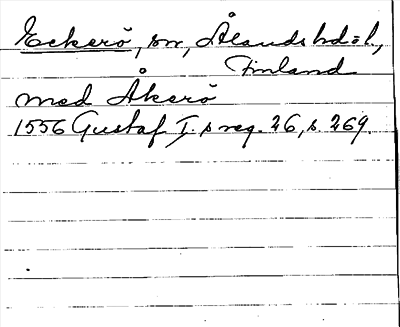 Eckerö, sn, Ålands hd o l.,
Finland
med Åkerö
1556 Gustaf I. s reg. 26, s. 269.